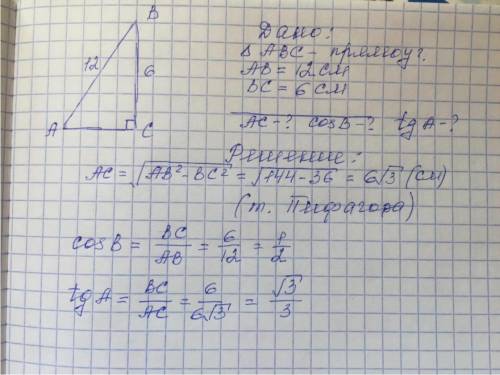 B
12
6
A
C
Дано:
Δ ABC - прямоуг.
AB = 12 см
BC = 6 см
AC-? cosB-? tgA-?
Решение:
AC = √AB²-BC² = √144-36 = 6√3 (см)
(т. Пифагора)
cosB = BC/AB = 6/12 = 1/2
tgA = BC/AC = 6/6√3 = √3/3